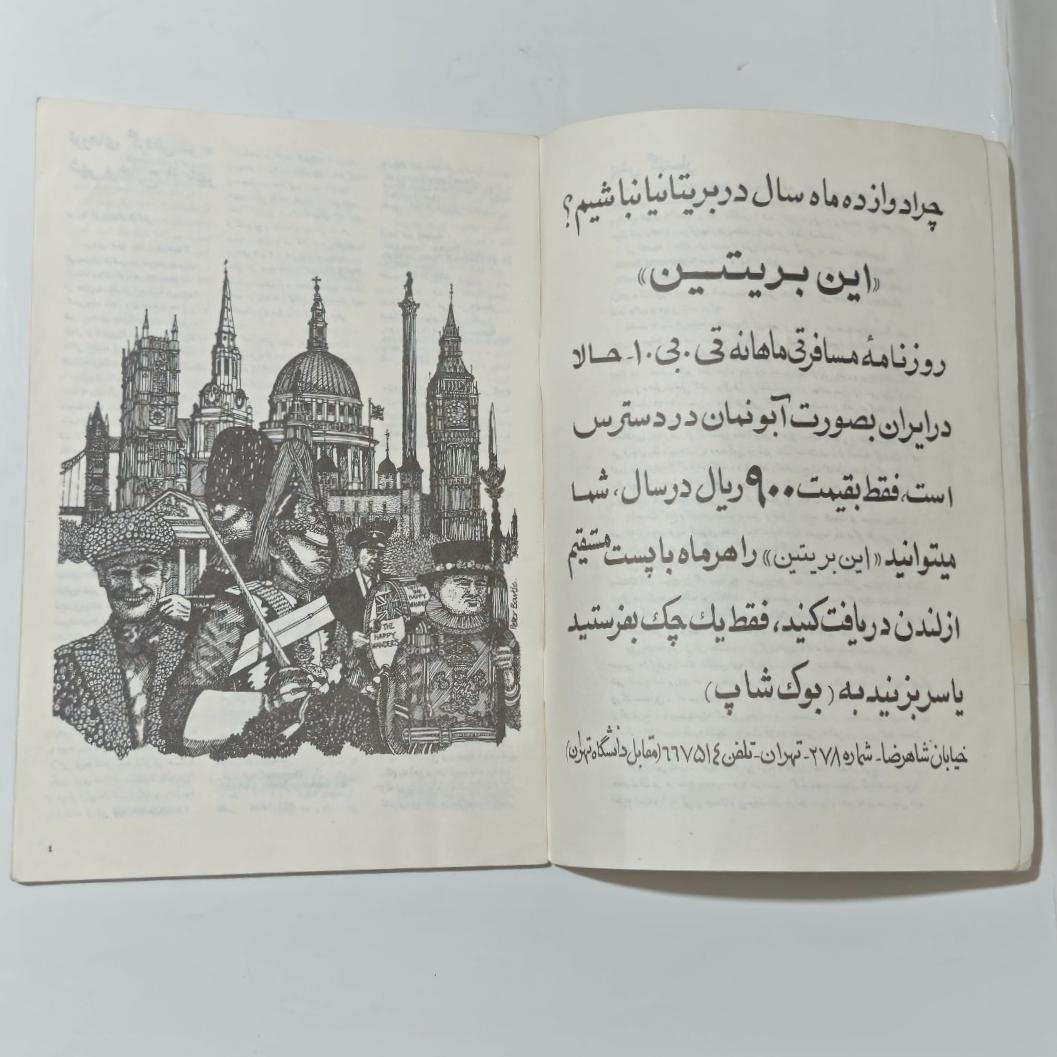 چرا دوازده ماه سال در بریتانیا نباشیم؟
«این بریتین»
روزنامهٔ مسافرتی ماهانه تی.بی.ا- حالا
در ایران بصورت آبونمان در دسترس
است، فقط بقیمت ۹۰۰ ریال در سال، شما
میتوانید «این بریتین» را هر ماه با پست مستقیم
از لندن دریافت کنید، فقط یك چك بفرستید
یا سر بزنید به (بوك شاپ)
خیابان شاهرضا- شماره ۲۷۸- تهران- تلفن ۶۶۷۵۱٤ (مقابل دانشگاه تهران)
THE HAPPY WANDERER
THE HAPPY